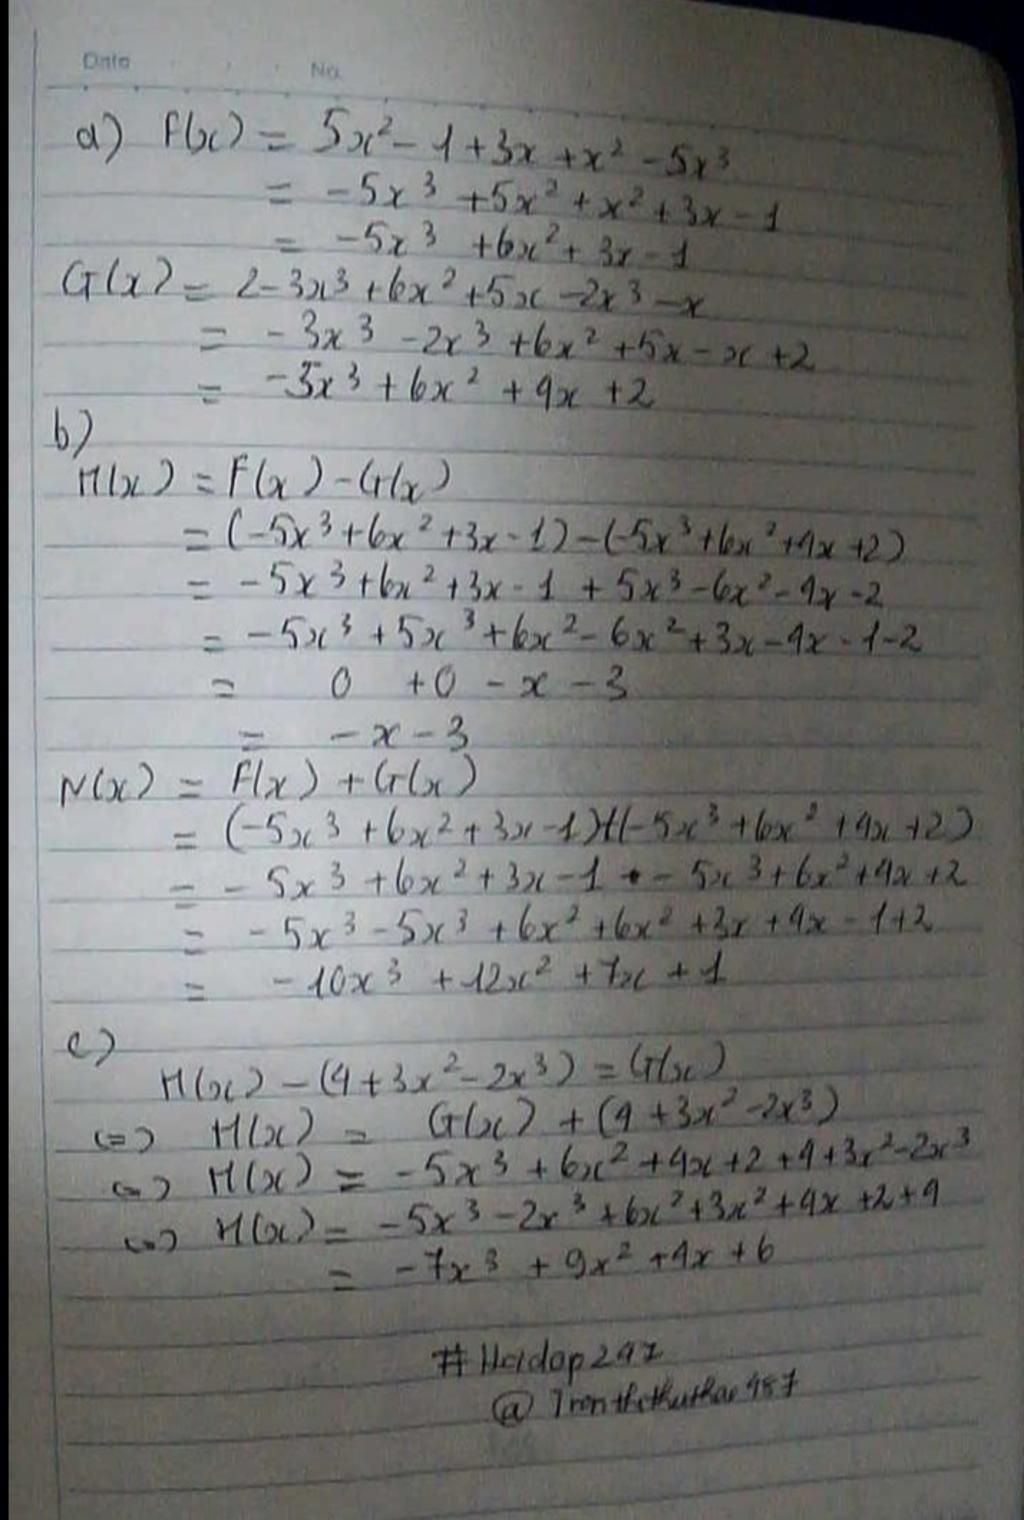 Date No.
a) F(x) = 5x² - 1 + 3x + x² - 5x³
= -5x³ + 5x² + x² + 3x - 1
= -5x³ + 6x² + 3x - 1
G(x) = 2 - 3x³ + 6x² + 5x - 2x³ - x
= -3x³ - 2x³ + 6x² + 5x - x + 2
= -5x³ + 6x² + 4x + 2
b)
M(x) = F(x) - G(x)
= (-5x³ + 6x² + 3x - 1) - (-5x³ + 6x² + 4x + 2)
= -5x³ + 6x² + 3x - 1 + 5x³ - 6x² - 4x - 2
= -5x³ + 5x³ + 6x² - 6x² + 3x - 4x - 1 - 2
= 0 + 0 - x - 3
= -x - 3
N(x) = F(x) + G(x)
= (-5x³ + 6x² + 3x - 1) + (-5x³ + 6x² + 4x + 2)
= -5x³ + 6x² + 3x - 1 - 5x³ + 6x² + 4x + 2
= -5x³ - 5x³ + 6x² + 6x² + 3x + 4x - 1 + 2
= -10x³ + 12x² + 7x + 1
c)
M(x) - (4 + 3x² - 2x³) = G(x)
<=> M(x) = G(x) + (4 + 3x² - 2x³)
<=> M(x) = -5x³ + 6x² + 4x + 2 + 4 + 3x² - 2x³
<=> M(x) = -5x³ - 2x³ + 6x² + 3x² + 4x + 2 + 4
= -7x³ + 9x² + 4x + 6
#Hoidap247